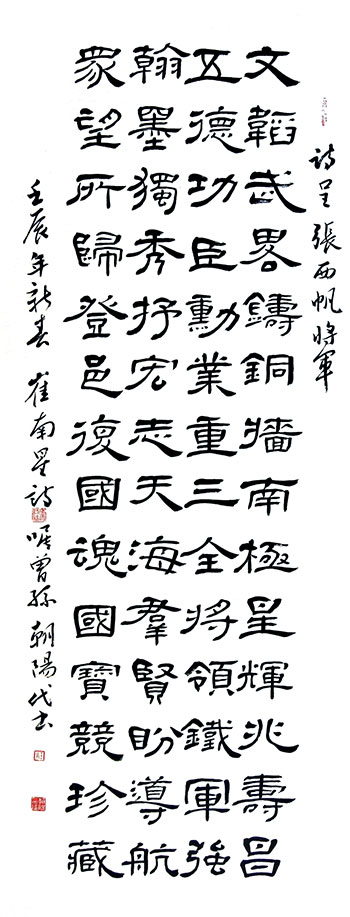 詩呈張西帆將軍
文韜武畧鑄銅牆南極星輝兆壽昌
五德功臣勳業重三全將領鐵軍強
翰墨獨秀抒宏志天海羣賢盼導航
衆望所歸登邑復國魂國寶競珍藏
壬辰年新春 崔南星詩 嘱曾孫朝陽代书